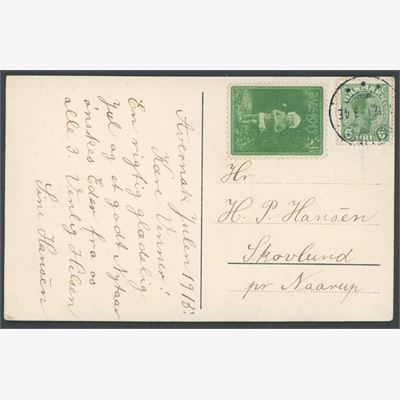 Avernak Julen 1913.
Kære Venner!
En rigtig glædelig
Jul og et godt Nytaar
ønskes Eder fra os
alle 3. Venlig Hilsen
Sine Hansen
DANMARK
5 ØRE 5
Hr
H. P. Hansen
Skovlund
pr Naarup